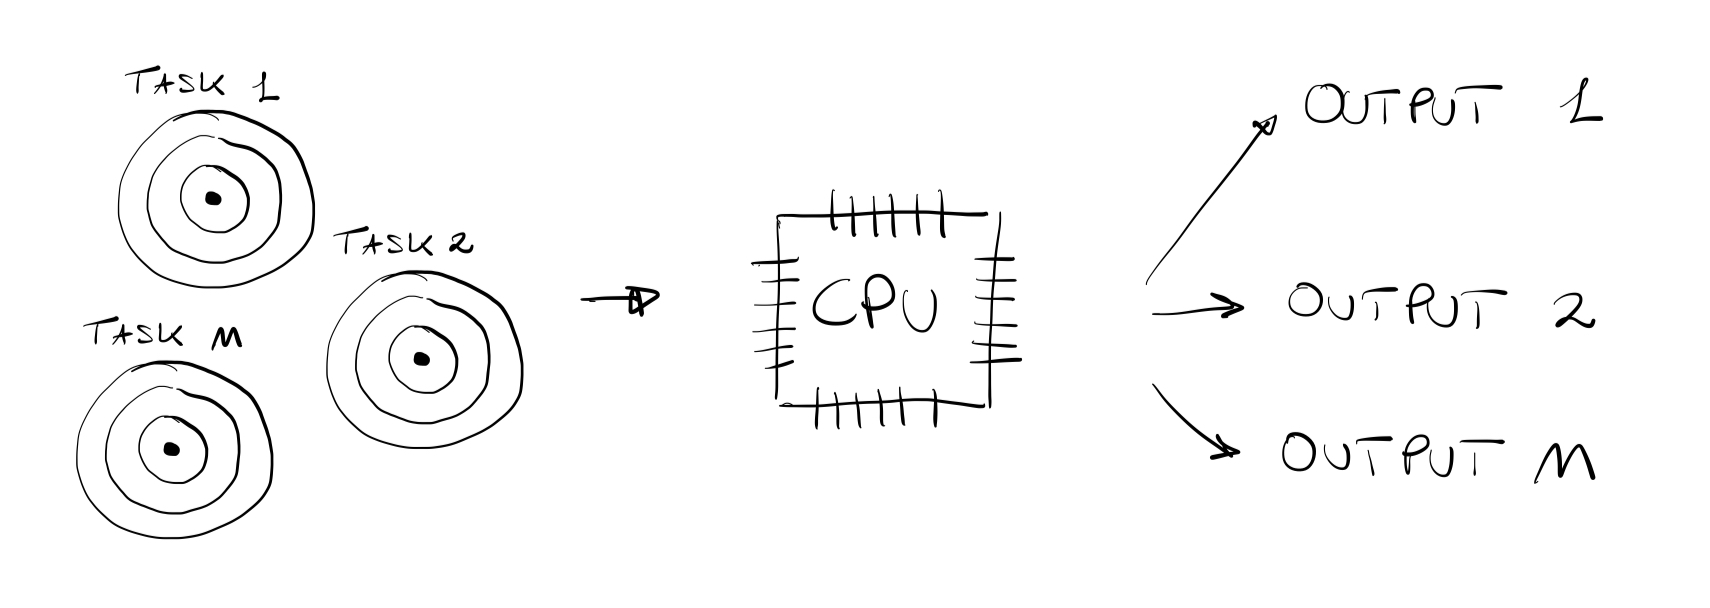 TASK 1
TASK 2
TASK M
CPU
OUTPUT 1
OUTPUT 2
OUTPUT M